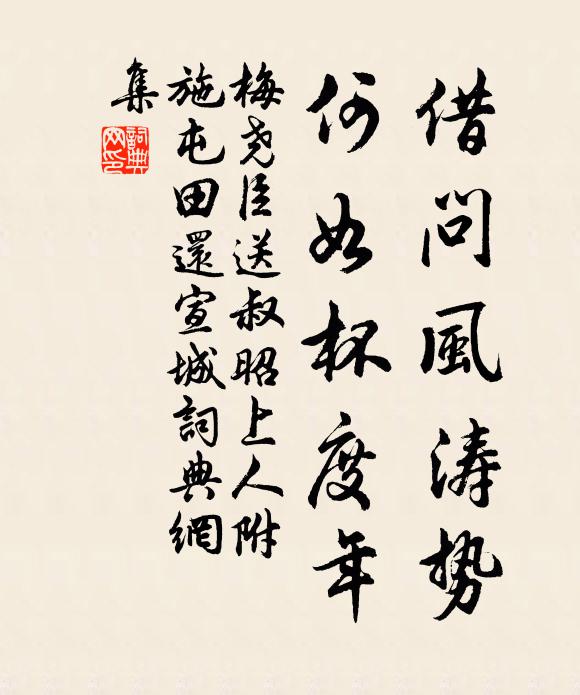 借問風涛勢
何如杯度年
梅堯臣送叔昭上人附
施屯田還宣城詞典網
集
詞典網印